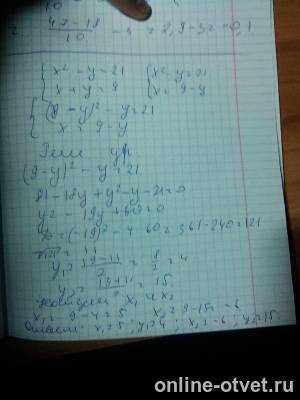 (4x-18)/10
{ x² - y = 21 { x² - y = 21
{ x + y = 9 { x = 9 - y
{ (9 - y)² - y = 21
{ x = 9 - y
Реш ур
(9 - y)² - y = 21
81 - 18y + y² - y - 21 = 0
y² - 19y + 60 = 0
D = (-19)² - 4·60 = 361 - 240 = 121
√121 = 11
y₁ = (19 - 11)/2 = 8/2 = 4
y₂ = (19 + 11)/2 = 15
Находим x₁ и x₂
x₁ = 9 - 4 = 5 x₂ = 9 - 15 = -6
Ответ: x₁ = 5; y₁ = 4; x₂ = -6; y₂ = 15.
online-otvet.ru